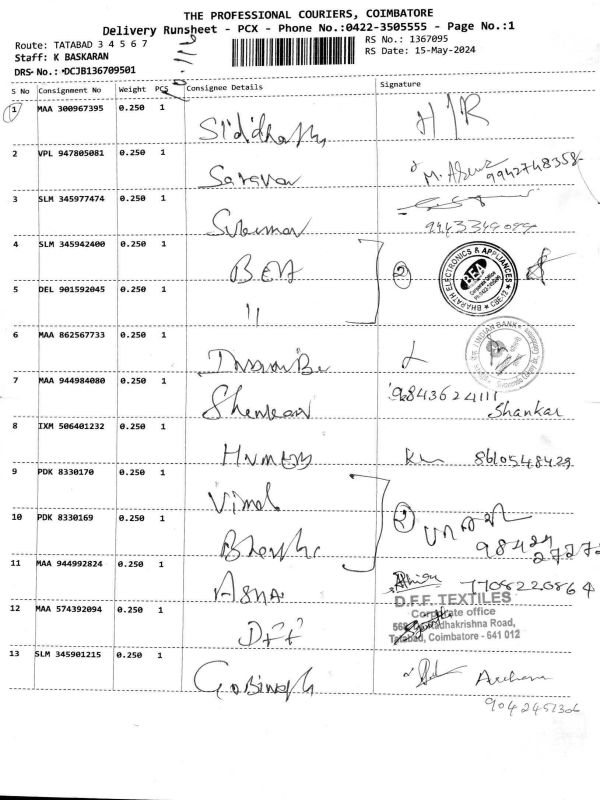 THE PROFESSIONAL COURIERS, COIMBATORE
Delivery Runsheet - PCX - Phone No.:0422-3505555 - Page No.:1
Route: TATABAD 3 4 5 6 7
RS No.: 1367095
Staff: K BASKARAN
RS Date: 15-May-2024
DRS No.: DCJB136709501
S No Consignment No Weight PCS Consignee Details Signature
1 MAA 300967395 0.250 1
2 VPL 947805081 0.250 1 Saravan 9942748358
3 SLM 345977474 0.250 1
4 SLM 345942400 0.250 1 BEA 2
BHARATH ELECTRONICS & APPLIANCES
BEA
Corporate Office
CBE-12
5 DEL 901592045 0.250 1 "
6 MAA 862567733 0.250 1
INDIAN BANK
7 MAA 944984080 0.250 1 9843624111
Shankar
8 IXM 506401232 0.250 1 8610548429
9 PDK 8330170 0.250 1 Vimal
10 PDK 8330169 0.250 1 2
98429
27272
11 MAA 944992824 0.250 1 ASNA 7708220864
12 MAA 574392094 0.250 1 DFF
D.F.F. TEXTILES
Corporate office
Radhakrishna Road,
Tatabad, Coimbatore - 641 012
13 SLM 345901215 0.250 1
9042451306